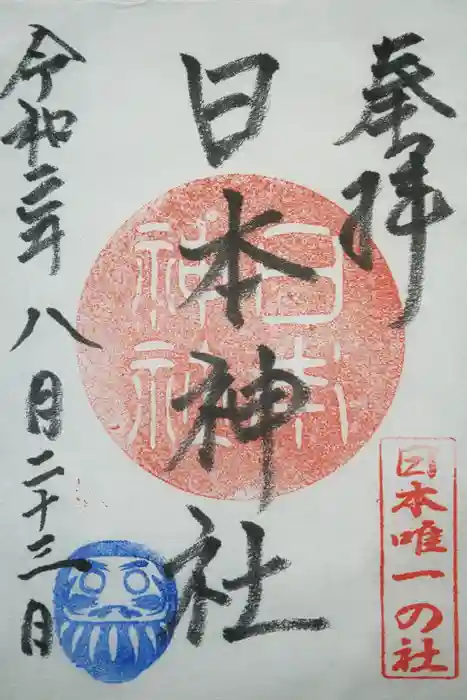 奉拝
日本神社
日本
神社
日本唯一の社
令和二年八月二十三日